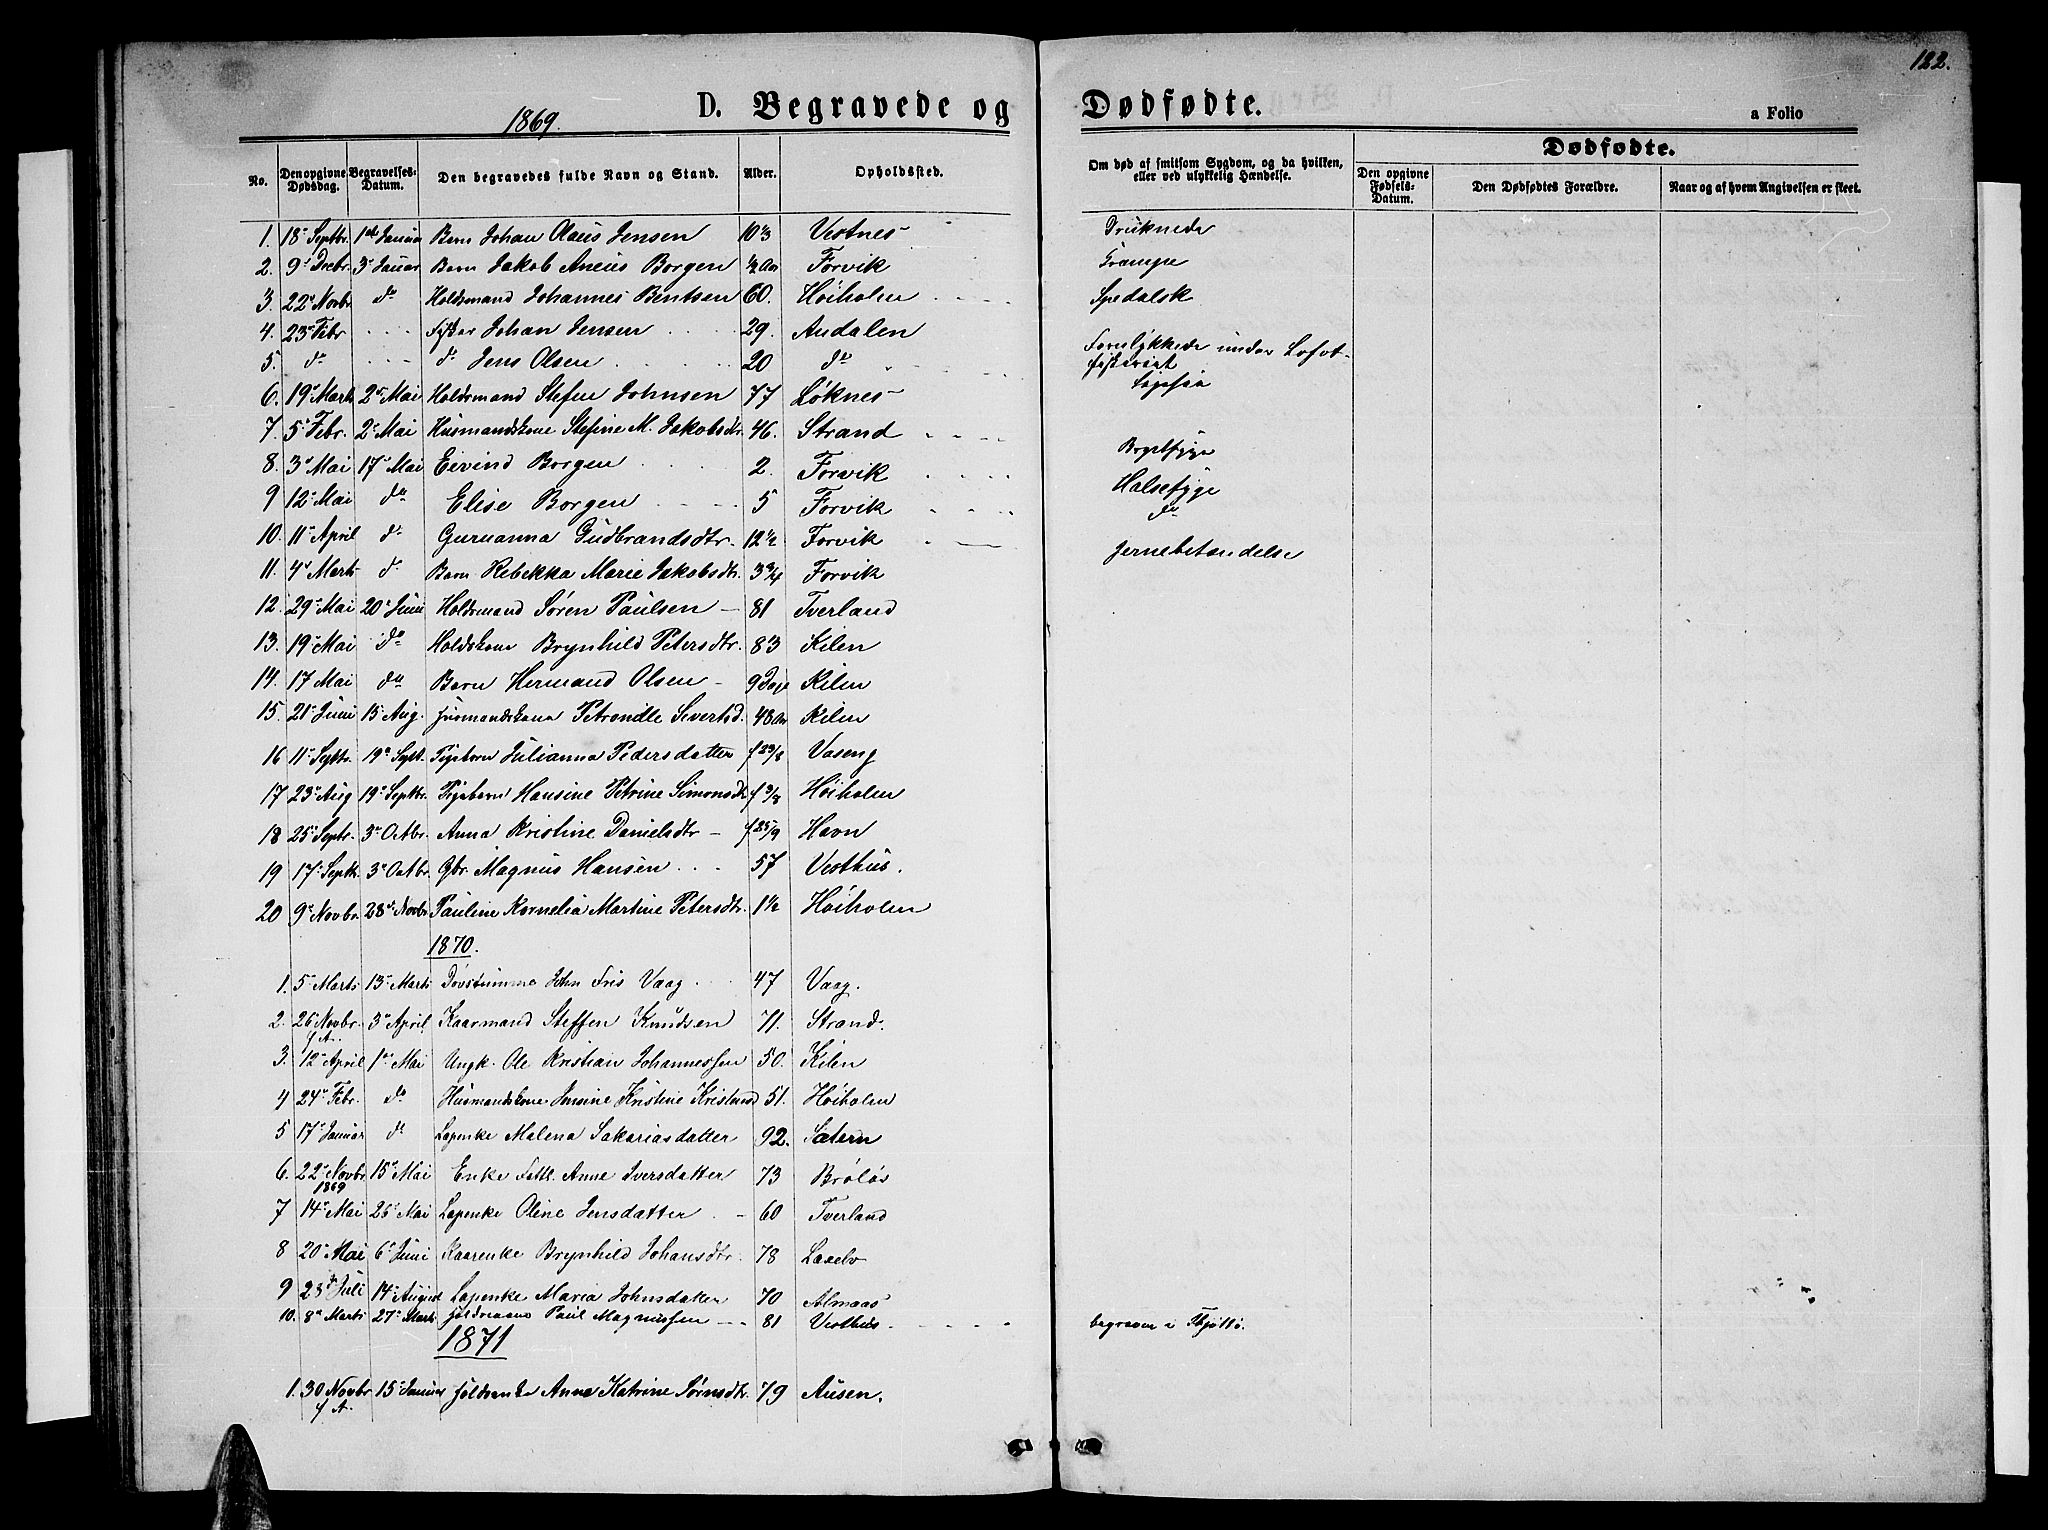 122.
1869.
D. Begravede og Dødfødte.
a Folio
No. Den opgivne Dødsdag. Begravelses-Datum. Den begravedes fulde Navn og Stand. Alder. Opholdssted. Om død af smitsom Sygdom, og da hvilken, eller ved ulykkelig Hændelse. Dødfødte. Den opgivne Fødsels-Datum. Den Dødfødtes Forældre. Naar og af hvem Angivelsen er skeet.
1. 18 Septbr. 1ste Januar Barn Johan Olaus Jensen 10 1/3 Vestnes Druknede
2. 9 Decbr. 3 Januar Barn Jakob Aneus Borgen 1/2 Aar Forvik Krampe
3. 22 Novbr. do Holdsmand Johannes Bentsen 60. Høiholm Spedalsk
4. 23 Febr Fisker Johan Jensen 29. Andalen Forulykkede under Lofot-
5. do do Jens Olsen 20 do fiskeriet
6. 19 Marts 2 Mai Holdsmand Stefen Johnsen 77 Løknes
7. 5 Febr. 2 Mai Husmandskone Stefine M. Jakobsdtr. 46. Strand Brystsyge
8. 3 Mai 17 Mai Eivind Borgen 2. Forvik Halsesyge
9 12 Mai do Elise Borgen 5 Forvik do
10. 11 April do Guruanna Gudbrandsdtr. 12 1/2 Forvik Hjernebetændelse
11. 4 Marts do Barn Rebekka Marie Jakobsdtr. 3 3/4 Forvik
12. 29 Mai 20 Juni Holdsmand Søren Paulsen 81 Tverland
13. 19 Mai do Holdskone Brynhild Petersdtr. 83 Kilen
14. 17 Mai do Barn Hermand Olsen 9 Dage Kilen
15. 21 Juni 15 Aug. Husmandskone Petronille Sivertsd. 48 Aar Kilen
16 11 Septbr. 19 Sept. Pigebarn Julianna Pedersdatter f 29/8 Vaseng
17 23 Aug 19 Septbr. Pigebarn Hansine Petrine Simonsdtr f 3/8 Høiholm
18 25 Septr. 3 Octbr. Anna Kristine Danielsdtr f 25/9 Havn
19 17 Septb. 3 Octbr. Gbr. Magnus Hansen 57 Vesthus.
20 9 Novbr. 28 Novbr. Pauline Kornelia Martine Petersdtr. 1 1/2 Høiholm
1870.
1. 5 Marts 13 Marts Døvstumme John Fris Vaag 47 Vaag.
2. 26 Novbr. f. A. 3 April Kaarmand Steffen Knudsen 71. Strand.
3. 12 April 1ste Mai Ungk. Ole Kristian Johannessen 50. Kilen
4 24 Febr. do Husmandskone Kristine 51. Høiholm
5 17 Januar do Lapenke Malena Sakariasdatter 92. Sætern
6. 22 Novbr 1869 15 Mai Enke Fatt. Anne Iversdatter 73 Brøløs
7 14 Mai 26 Mai Lapenke Oline Jensdatter 60 Tverland
8 20 Mai 6 Juni Kaarenke Brynhild Johansdtr. 78 Laxelv
9 23 Juli 14 August Lapenke Maria Johnsdatter 70 Almaas
10. 8 Marts 27 Marts Paul Magnussen 81 Vesthus begraven i Tjøttø.
1871
1. 30 Novbr f A. 15 Januar Anne Katrine Sørnsdtr. 79 Ausen.